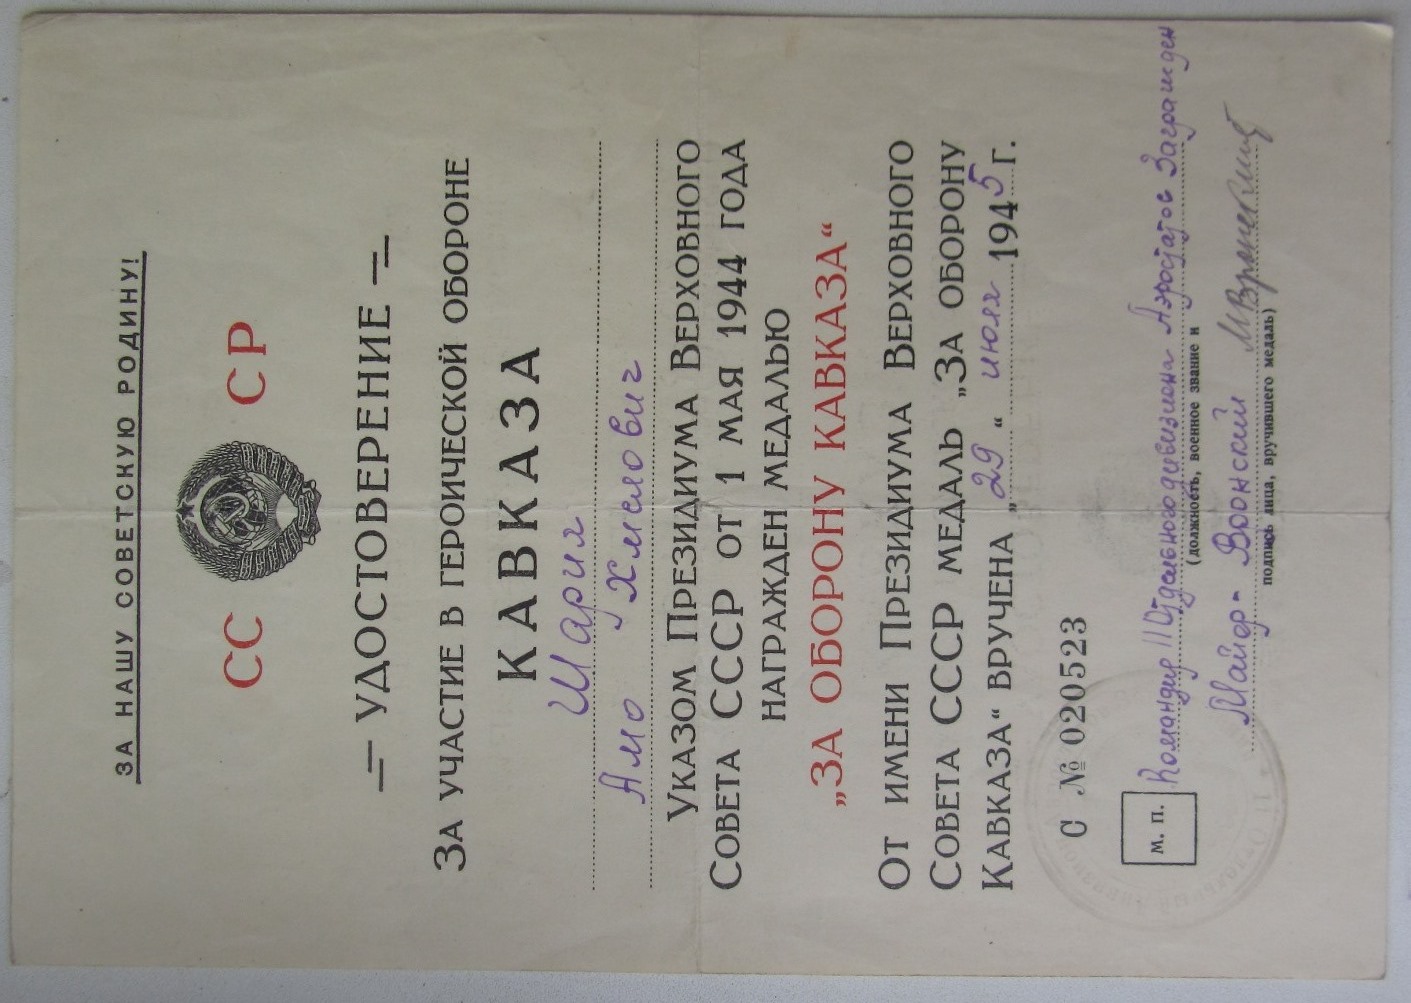 ЗА НАШУ СОВЕТСКУЮ РОДИНУ!
СС СР
УДОСТОВЕРЕНИЕ
ЗА УЧАСТИЕ В ГЕРОИЧЕСКОЙ ОБОРОНЕ
КАВКАЗА
Шария
Амо Хмелович
УКАЗОМ ПРЕЗИДИУМА ВЕРХОВНОГО
СОВЕТА СССР ОТ 1 МАЯ 1944 ГОДА
НАГРАЖДЕН МЕДАЛЬЮ
„ЗА ОБОРОНУ КАВКАЗА“
ОТ ИМЕНИ ПРЕЗИДИУМА ВЕРХОВНОГО
СОВЕТА СССР МЕДАЛЬ „ЗА ОБОРОНУ
КАВКАЗА“ ВРУЧЕНА „29“ июля 1945 г.
С № 020523
м. п.
Командир 11 Отдельного дивизиона Аэростатов Загражден
(должность, военное звание и
Майор - Вронский МВронский
подпись лица, вручившего медаль)